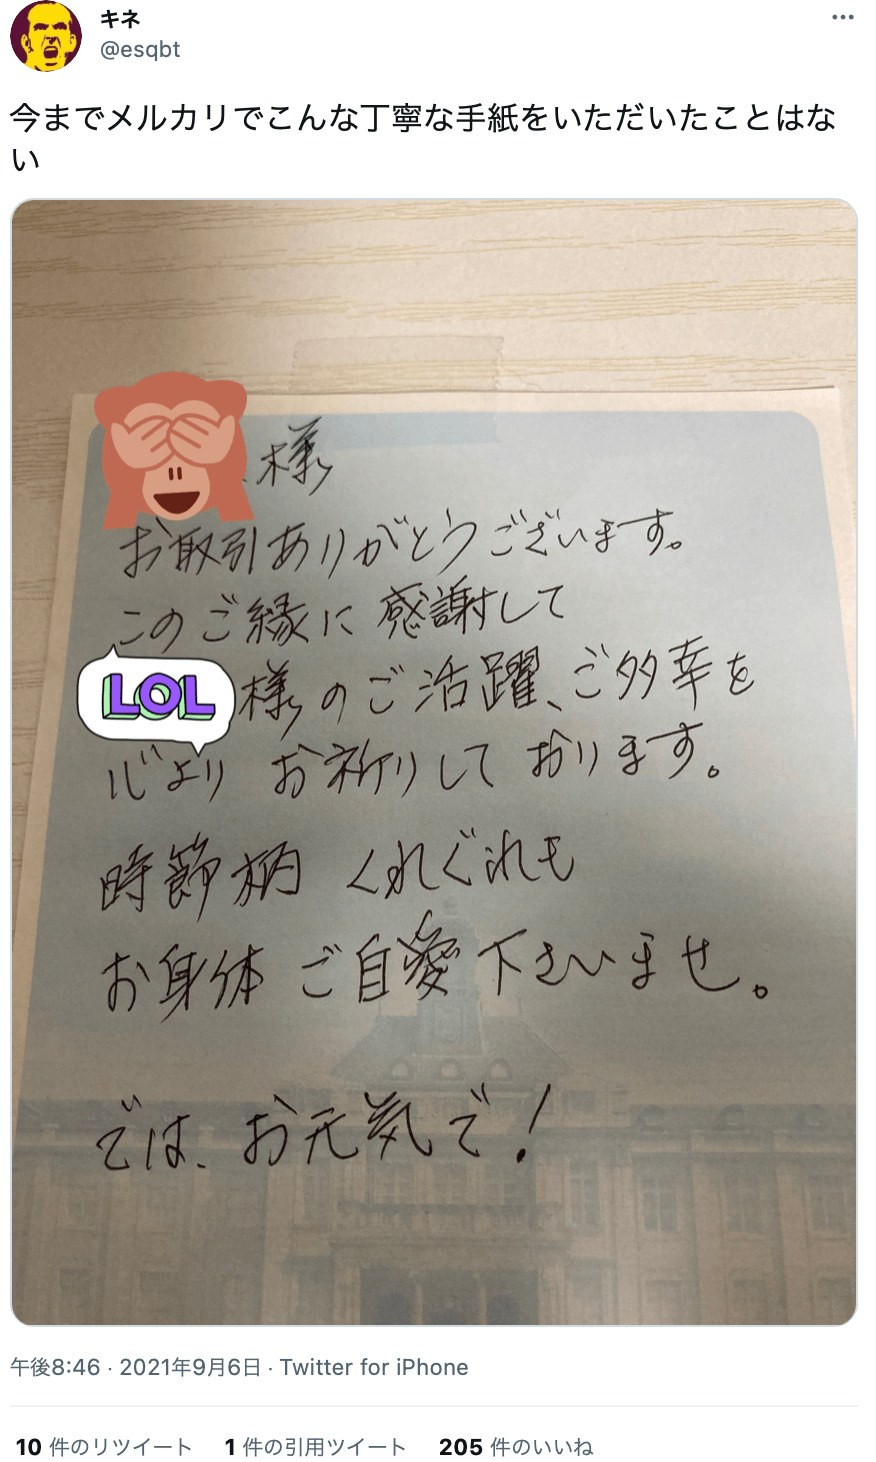 キネ
@esqbt
今までメルカリでこんな丁寧な手紙をいただいたことはな
い
様
お取引ありがとうございます。
このご縁に感謝して
LOL様のご活躍、ご多幸を
心よりお祈りしております。
時節柄 くれぐれも
お身体 ご自愛下さいませ。
では、お元気で!
午後8:46 · 2021年9月6日 · Twitter for iPhone
10 件のリツイート 1 件の引用ツイート 205 件のいいね